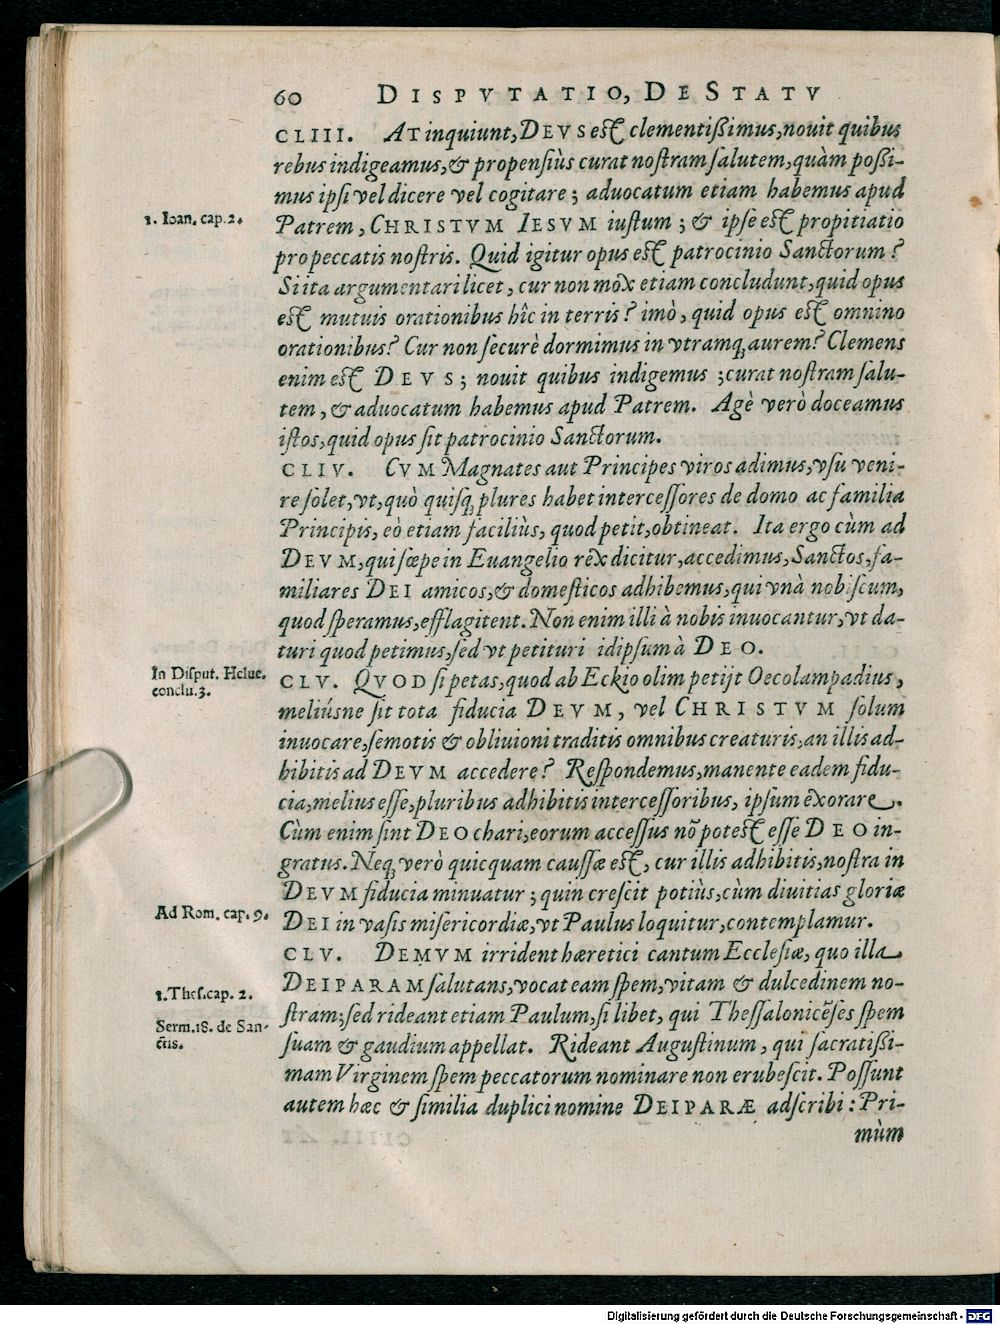 60 DISPVTATIO, DE STATV
CLIII. AT inquiunt, DEVS est clementißimus, nouit quibus
rebus indigeamus, & propensiùs curat nostram salutem, quàm poßi-
mus ipsi vel dicere vel cogitare; aduocatum etiam habemus apud
1. Ioan. cap. 2.
Patrem, CHRISTVM IESVM iustum; & ipse est propitiatio
pro peccatis nostris. Quid igitur opus est patrocinio Sanctorum?
Si ita argumentari licet, cur non mox etiam concludunt, quid opus
est mutuis orationibus hîc in terris? imò, quid opus est omnino
orationibus? Cur non securè dormimus in vtramq; aurem? Clemens
enim est DEVS; nouit quibus indigemus; curat nostram salu-
tem, & aduocatum habemus apud Patrem. Agè verò doceamus
istos, quid opus sit patrocinio Sanctorum.
CLIV. CVM Magnates aut Principes viros adimus, vsu veni-
re solet, vt, quò quisq; plures habet intercessores de domo ac familia
Principis, eò etiam faciliùs, quod petit, obtineat. Ita ergo cùm ad
DEVM, qui sæpe in Euangelio rex dicitur, accedimus, Sanctos, fa-
miliares DEI amicos, & domesticos adhibemus, qui vnà nobiscum,
quod speramus, efflagitent. Non enim illi à nobis inuocantur, vt da-
turi quod petimus, sed vt petituri idipsum à DEO.
In Disput. Helue.
conclu. 3.
CLV. QVOD si petas, quod ab Eckio olim petijt Oecolampadius,
meliúsne sit tota fiducia DEVM, vel CHRISTVM solum
inuocare, semotis & obliuioni traditis omnibus creaturis, an illis ad-
hibitis ad DEVM accedere? Respondemus, manente eadem fidu-
cia, melius esse, pluribus adhibitis intercessoribus, ipsum exorare.
Cùm enim sint DEO chari, eorum accessus nõ potest esse DEO in-
gratus. Neq; verò quicquam caussæ est, cur illis adhibitis, nostra in
DEVM fiducia minuatur; quin crescit potiùs, cùm diuitias gloriæ
Ad Rom. cap. 9.
DEI in vasis misericordiæ, vt Paulus loquitur, contemplamur.
CLV. DEMVM irrident hæretici cantum Ecclesiæ, quo illa
DEIPARAM salutans, vocat eam spem, vitam & dulcedinem no-
1. Thes. cap. 2.
stram; sed rideant etiam Paulum, si libet, qui Thessalonicẽses spem
Serm. 18. de San-
ctis.
suam & gaudium appellat. Rideant Augustinum, qui sacratißi-
mam Virginem spem peccatorum nominare non erubescit. Possunt
autem hæc & similia duplici nomine DEIPARÆ adscribi: Pri-
mùm
Digitalisierung gefördert durch die Deutsche Forschungsgemeinschaft - DFG